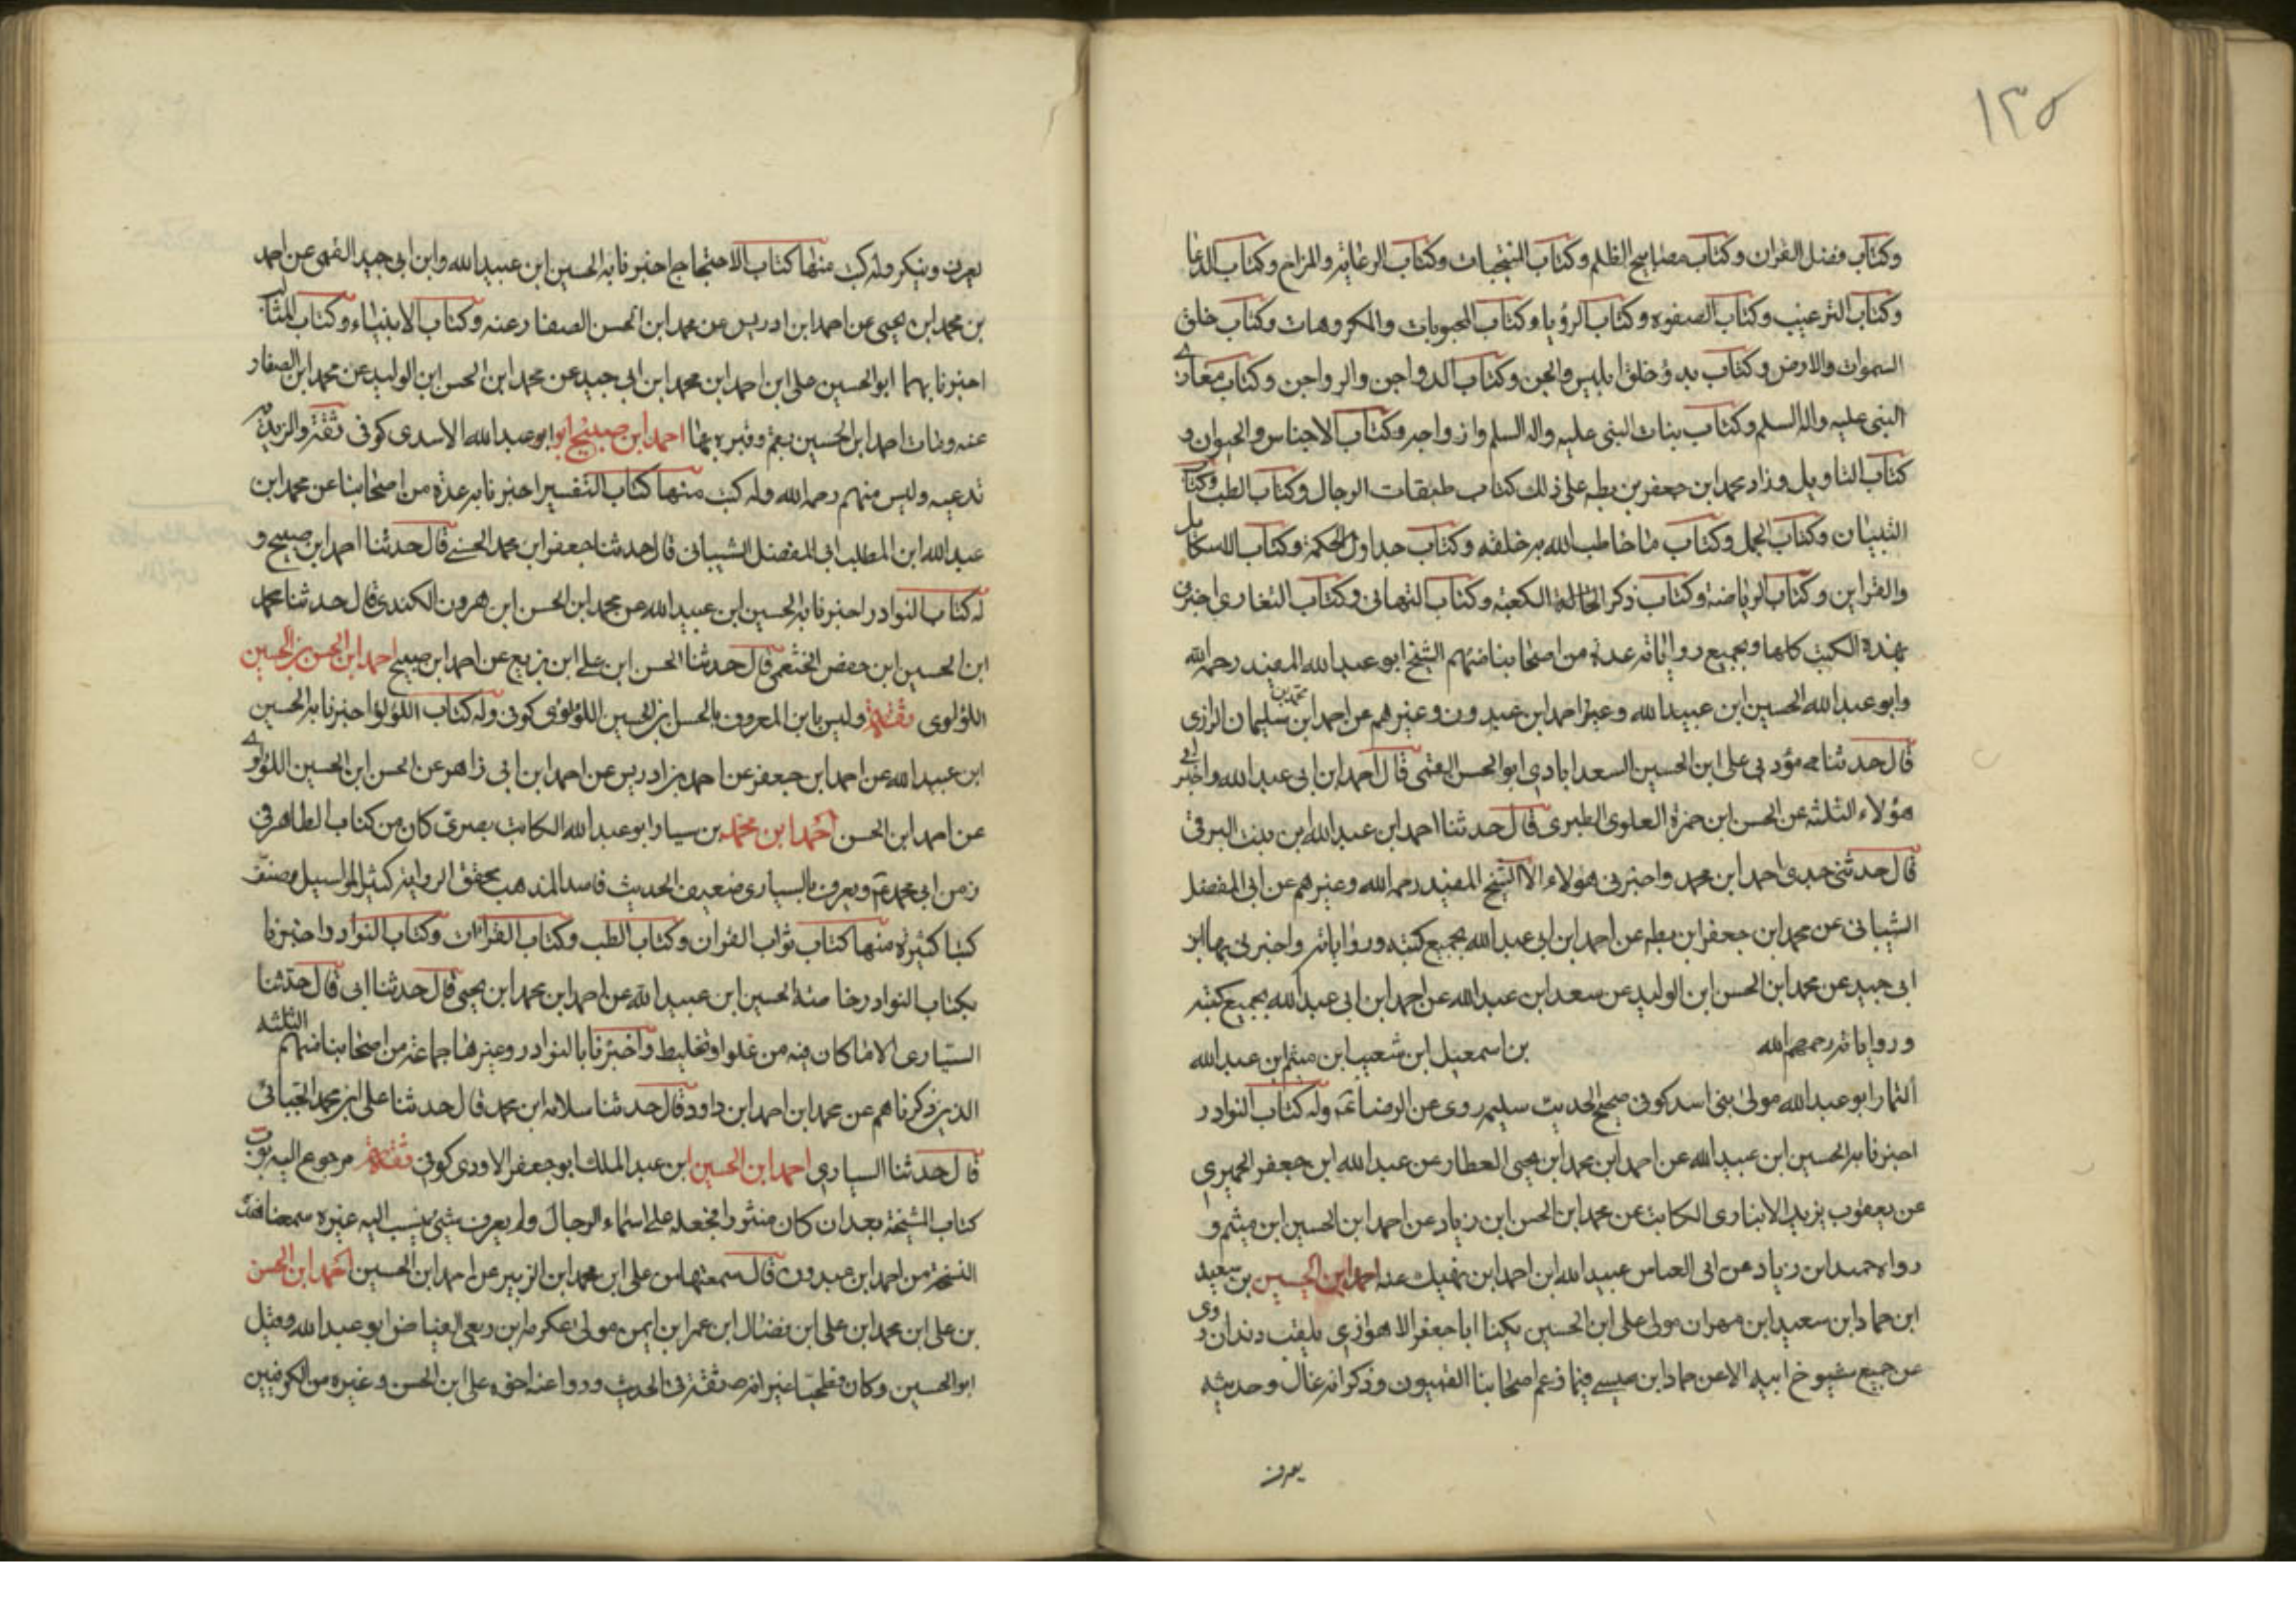 ١٣٥
وكتاب فضل القران وكتاب مصابيح الظلم وكتاب المنتجبات وكتاب الدعابة والمزاح وكتاب الدعا
وكتاب الترغيب وكتاب الصفوه وكتاب الرؤيا وكتاب المحبوبات والمكروهات وكتاب خلق
السموات والارض وكتاب بدؤ خلق ابليس والجن وكتاب الدواجن والرواجن وكتاب مغازى
النبى عليه واله السلم وكتاب بنات النبى عليه واله السلم وازواجه وكتاب الاجناس والحيوان و
كتاب التاويل وزاد محمد ابن جعفر بن بطه على ذلك كتاب طبقات الرجال وكتاب الطب وكتاب
التبيان وكتاب الجمل وكتاب ما خاطب الله به خلقه وكتاب جداول الحكمة وكتاب الاشكال
والقراين وكتاب الرياضة وكتاب ذكر الكعبة وكتاب التهانى وكتاب التعازى اخبرنى
بهذه الكتب كلها وبجميع رواياته عدة من اصحابنا منهم الشيخ ابو عبد الله المفيد رحمه الله
وابو عبد الله الحسين ابن عبيد الله وعبد احمد ابن عبدون وغيرهم عن احمد ابن محمد بن سليمان الرازى
قال حدثنا مؤدبى على ابن الحسين السعدابادى ابو الحسن القمى قال احمد ابن ابى عبد الله واخبرنى
هؤلاء الثلثه عن الحسن ابن حمزة العلوى الطبرى قال حدثنا احمد ابن عبد الله ابن بنت البرقى
قال حدثنى جدى احمد ابن محمد واخبرنى هؤلاء الا الشيخ المفيد رحمه الله وغيرهم عن ابى المفضل
الشيبانى عن محمد ابن جعفر ابن بطه عن احمد ابن ابى عبد الله بجميع كتبه ورواياته واخبرنى بها ابن
ابى جيد عن محمد ابن الحسن ابن الوليد عن سعد ابن عبد الله عن احمد ابن ابى عبد الله بجميع كتبه
ورواياته رحمهم الله بن اسمعيل ابن شعيب ابن ميثم ابن عبد الله
التمار ابو عبد الله مولى بنى اسد كوفى صحيح الحديث سليم روى عن الرضا عم وله كتاب النوادر
اخبرنا به الحسين ابن عبيد الله عن احمد ابن محمد ابن يحيى العطار عن عبد الله ابن جعفر الحميرى
عن يعقوب يزيد الانبارى الكاتب عن محمد ابن الحسن ابن زياد عن احمد ابن الحسين ابن ميثم و
رواه حميد ابن زياد عن ابى العباس عبيد الله ابن احمد ابن نهيك عنه احمد ابن الحسين بن سعيد
ابن حماد ابن سعيد ابن مهران مولى على ابن الحسين يكنا ابا جعفر الاهوازى يلقب دندان روى
عن جميع شيوخ ابيه الا عن حماد ابن عيسى فيما زعم اصحابنا القميون وذكر انه غال وحديثه
يعرف
يعرف وينكر وله كتب منها كتاب الاحتجاج اخبرنا به الحسين ابن عبيد الله وابن ابى جيد القمى عن احمد
بن محمد ابن يحيى عن احمد ابن ادريس عن محمد ابن الحسن الصفار عنه وكتاب الانبياء وكتاب المثالب
اخبرنا بهما ابو الحسين على ابن احمد ابن محمد ابن ابى جيد عن محمد ابن الحسن ابن الوليد عن محمد ابن الصفار
عنه ومات احمد ابن الحسين بقم وقبره بها احمد ابن صبيح ابو ابو عبد الله الاسدى كوفى ثقة والزيدية
تدعيه وليس منهم رحمه الله وله كتب منها كتاب التفسير اخبرنا به عدة من اصحابنا عن محمد ابن
عبد الله ابن المطلب ابى المفضل الشيبانى قال حدثنا جعفر ابن محمد الحسنى قال حدثنا احمد ابن صبيح و
له كتاب النوادر اخبرنا به الحسين ابن عبيد الله عن محمد ابن الحسن ابن هرون الكندى قال حدثنا محمد
ابن الحسين ابن حفص الخثعمى قال حدثنا الحسن ابن على ابن بزيع عن احمد ابن صبيح احمد ابن الحسن بن الحسين
اللؤلوى ثقة وليس بابن المعروف بالحسن بن الحسين اللؤلؤى كوفى وله كتاب اللؤلؤ اخبرنا به الحسين
ابن عبيد الله عن احمد ابن جعفر عن احمد بن ادريس عن احمد ابن ابى زاهر عن الحسن ابن الحسين اللؤلؤى
عن احمد ابن الحسن احمد ابن محمد بن سيار ابو عبد الله الكاتب بصرى كان من كتاب الطاهر فى
زمن ابى محمد عم ويعرف بالسيارى ضعيف الحديث فاسد المذهب مجفو الرواية كثير المراسيل مصنف
كتبا كثيرة منها كتاب ثواب القران وكتاب الطب وكتاب القراءات وكتاب النوادر اخبرنا
بكتاب النوادر خاصة الحسين ابن عبيد الله عن احمد ابن محمد ابن يحيى قال حدثنا ابى قال حدثنا
السيارى الا ما كان فيه من غلو او تخليط واخبرنا بالنوادر وغيرها جماعة من اصحابنا منهم الثلثه
الذين ذكرناهم عن محمد ابن احمد ابن داود قال حدثنا سلامه ابن محمد قال حدثنا على ابن محمد الجبائى
قال حدثنا السيارى احمد ابن الحسين ابن عبد الملك ابو جعفر الاودى كوفى ثقة مرجوع اليه بوب
كتاب المشيخة بعد ان كان منثورا فجعله على اسماء الرجال ولم يعرف شىء ينسب اليه غيره سمعنا هذه
النسخة من احمد ابن عبدون قال سمعتها من على ابن محمد ابن الزبير عن احمد ابن الحسين احمد ابن الحسن
بن على ابن محمد ابن على ابن فضال ابن عمر ابن ايمن مولى عكرمه ابن ربعى الفياض ابو عبد الله وقيل
ابو الحسين وكان فطحيا غير انه ثقة فى الحديث وروا عنه اخوه على ابن الحسن وغيره من الكوفيين